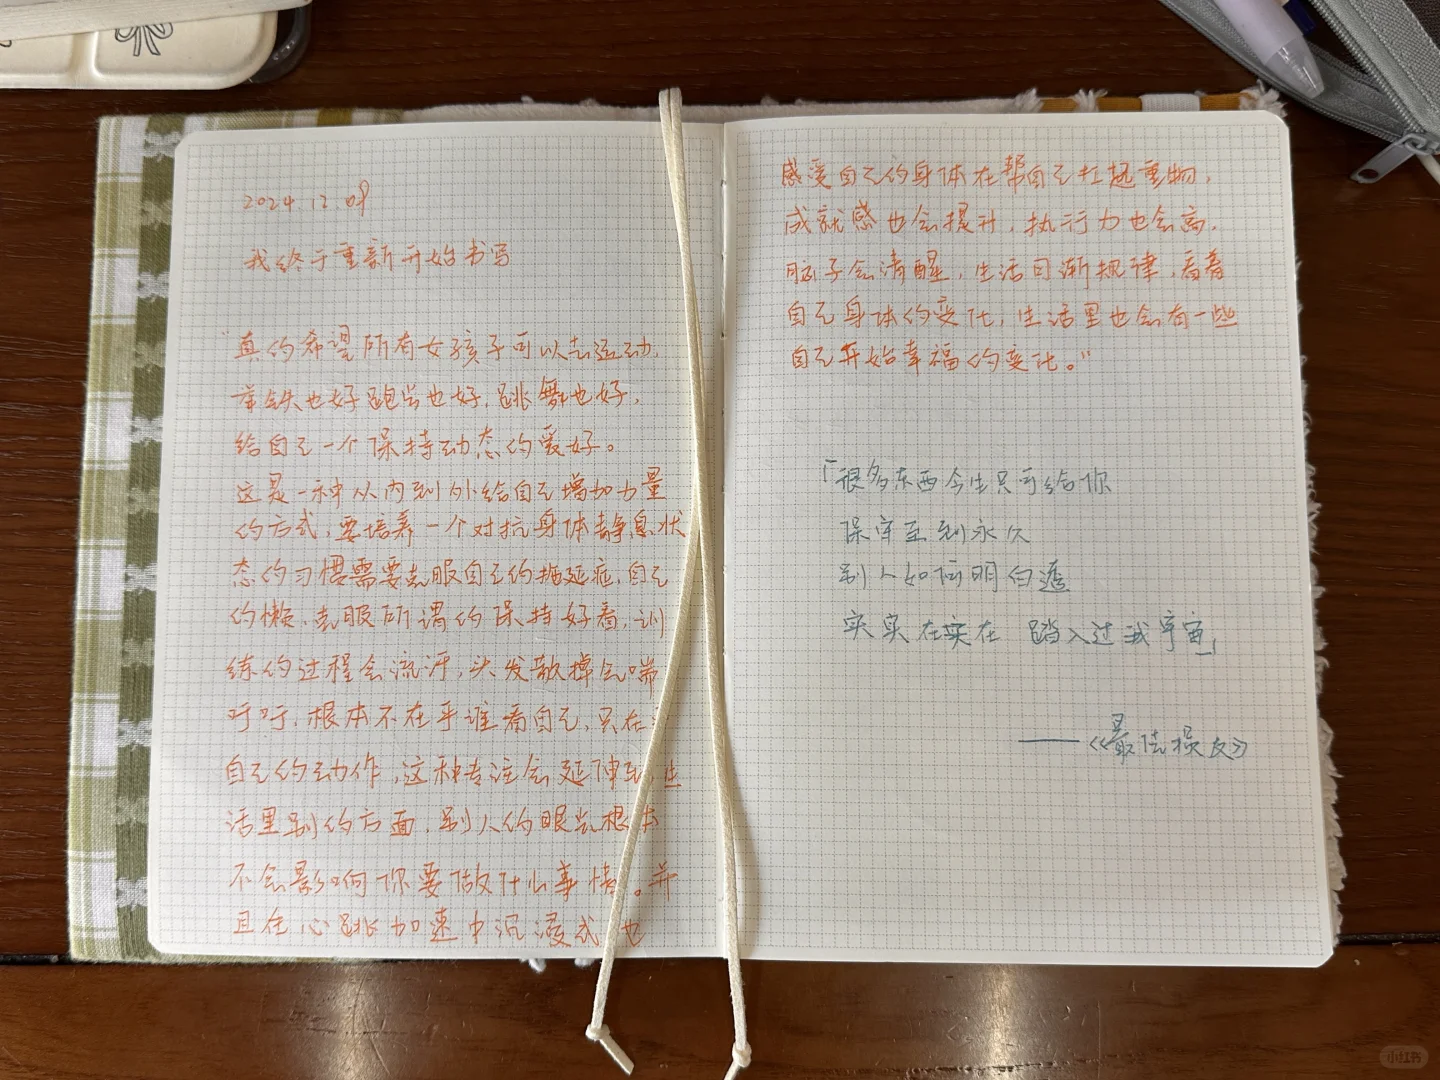 2024.12.09
我终于重新开始书写
“真的希望所有女孩子可以去运动,
举铁也好跑步也好,跳舞也好,
给自己一个保持动态的爱好。
这是一种从内到外给自己增加力量
的方式,要培养一个对抗身体静息状
态的习惯需要克服自己的拖延症,自己
的懒、克服所谓的保持好看,训
练的过程会流汗,头发散掉会喘
吁吁,根本不在乎谁看自己,只在
自己的动作,这种专注会延伸到生
活里别的方面,别人的眼光根本
不会影响你要做什么事情。并
且在心跳加速中沉浸式 也
感受自己的身体在帮自己扛起重物,
成就感也会提升,执行力也会高,
脑子会清醒,生活日渐规律,看着
自己身体的变化,生活里也会有一些
自己开始幸福的变化。”
「很多东西今生只可给你
保守至到永久
别人如何明白透
实实在实在 踏入过我宇宙」
——《最佳损友》
小红书